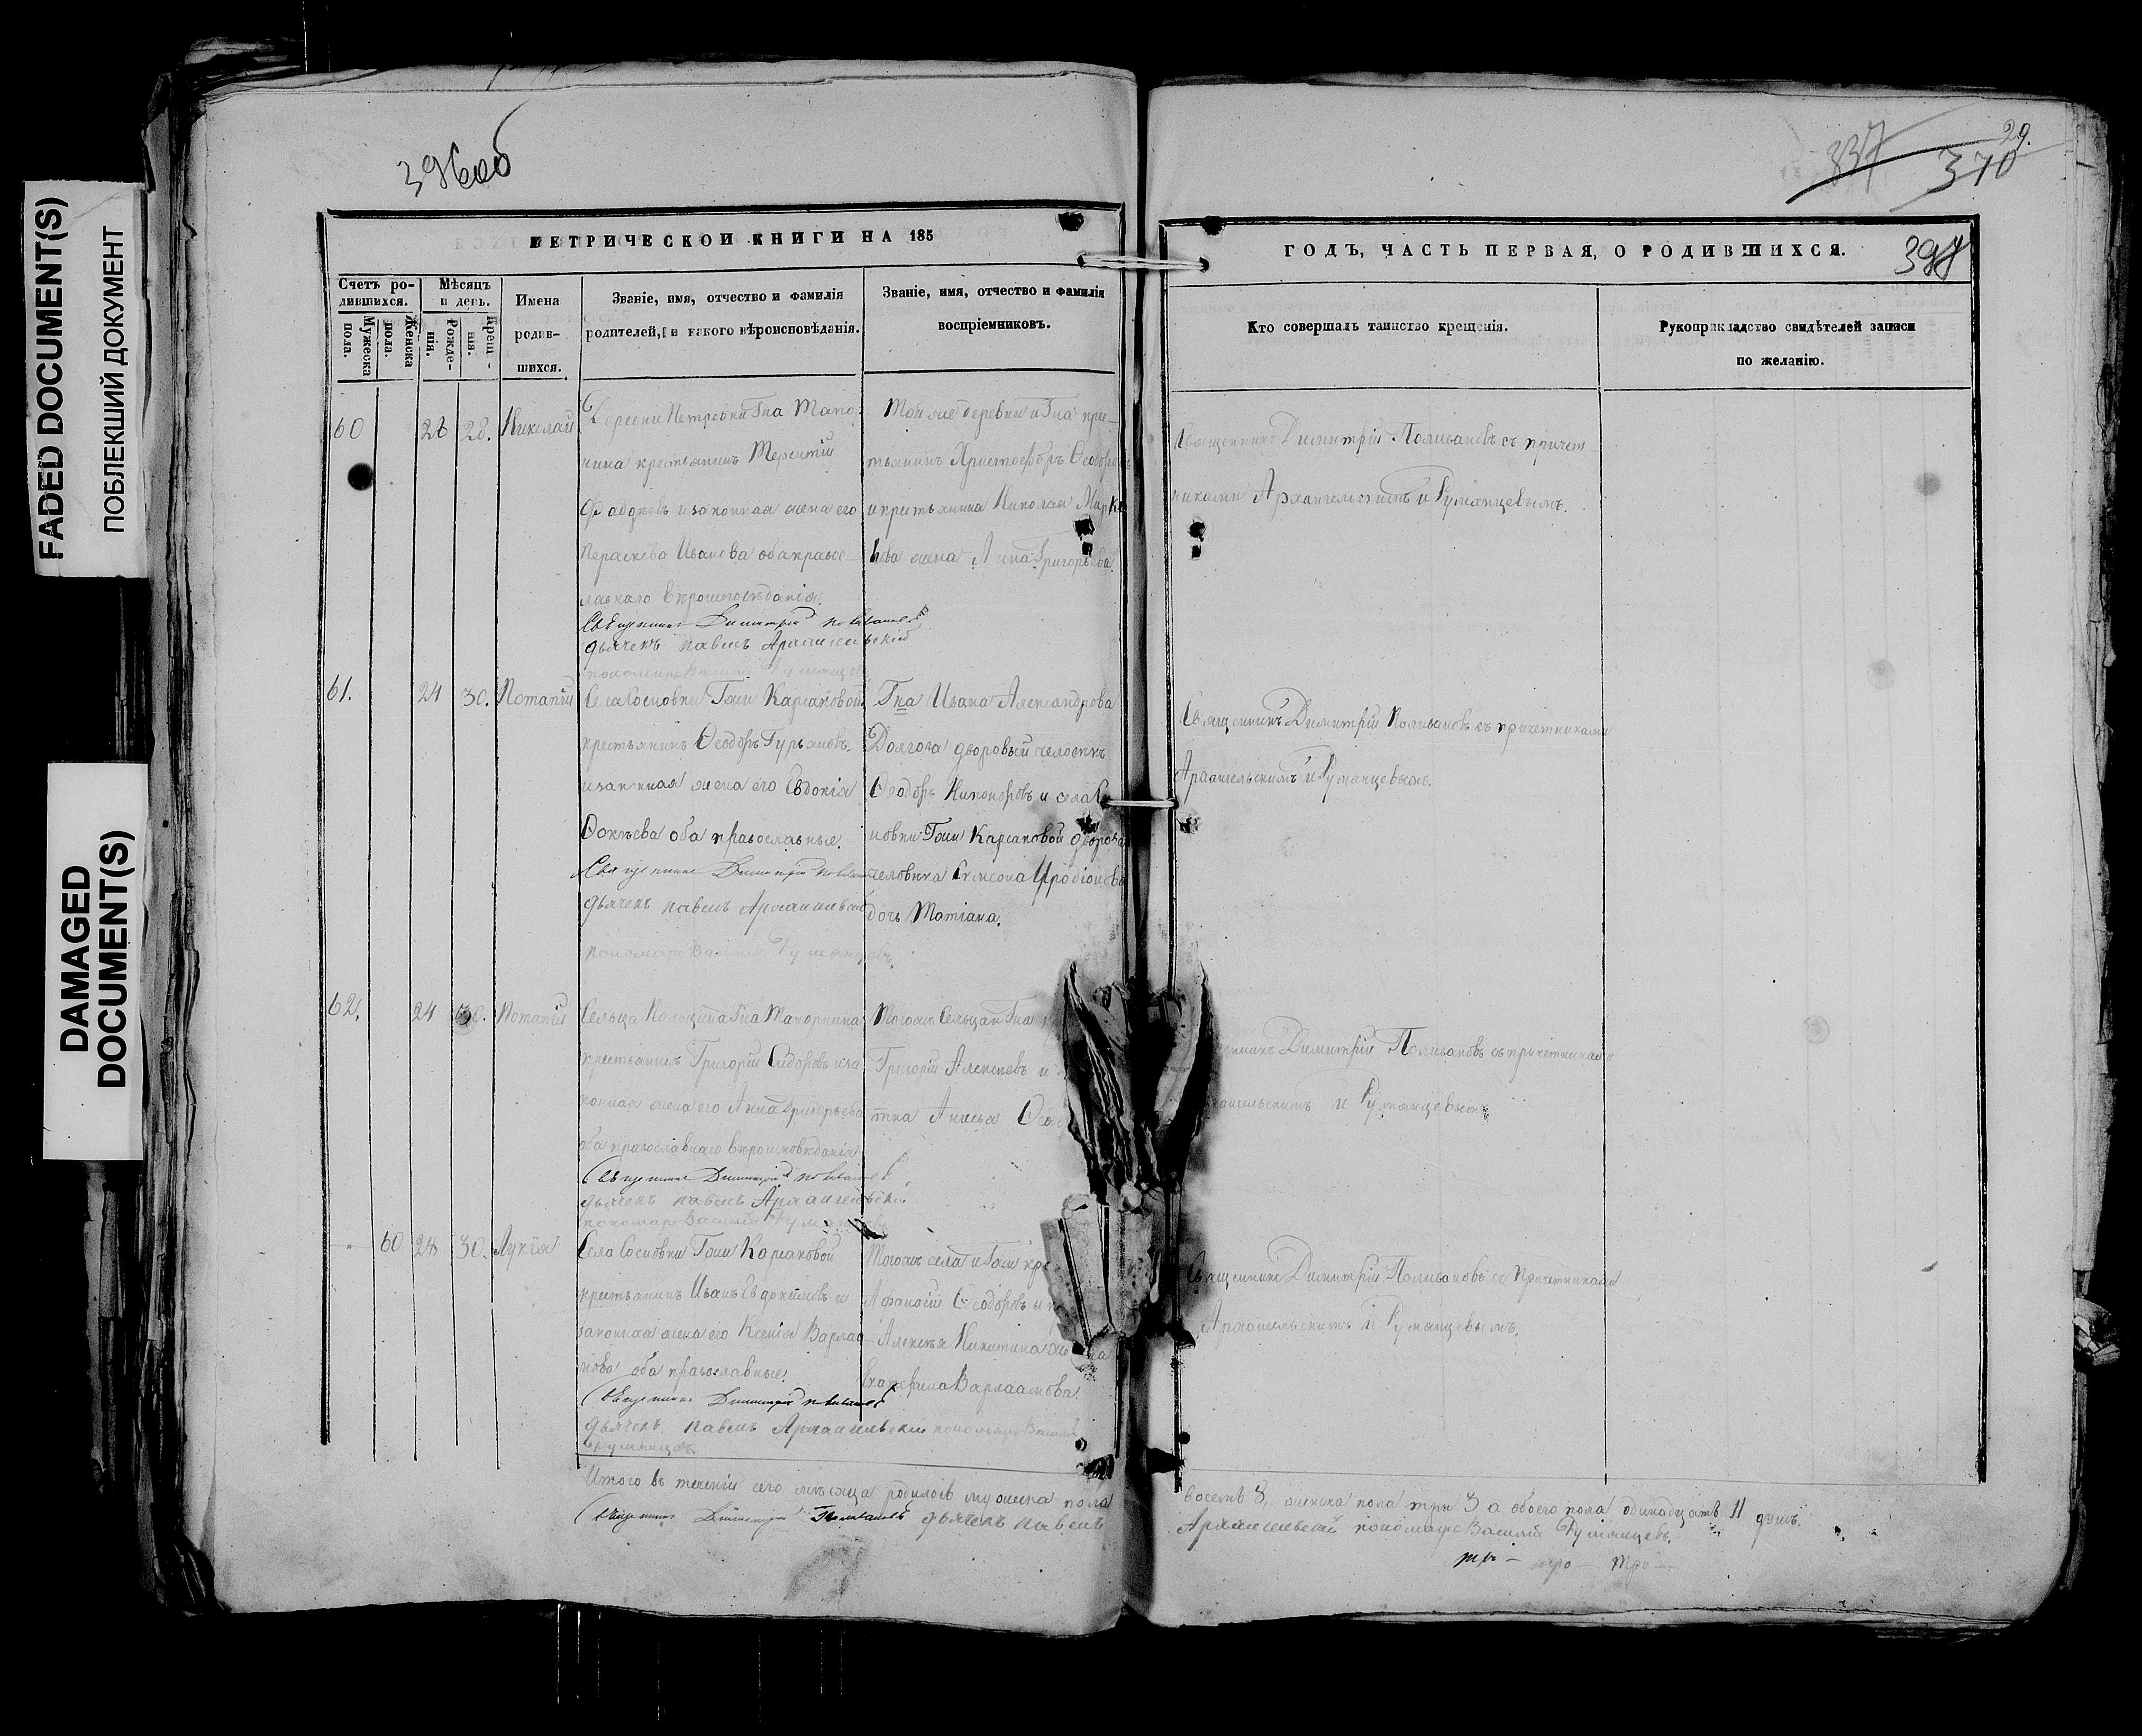 FADED DOCUMENT(S)
ПОБЛЕКШИЙ ДОКУМЕНТ
DAMAGED
DOCUMENT(S)
396об
МЕТРИЧЕСКОЙ КНИГИ НА 185
Счетъ ро-
дившихся.
Мужеска
пола.
Женска
пола.
Мѣсяцъ
и день.
Рожде-
нія.
Крещ-
нія.
Имена
родив-
шихся.
Званіе, имя, отчество и фамилія
родителей, и какого вѣроисповѣданія.
Званіе, имя, отчество и фамилія
воспріемниковъ.
60 26 28. Николай
Деревни Петровки Гна Тапор-
нина крестьянинъ Терентій
Фаддѣевъ и законная жена его
Параскева Иванова оба правос-
лавнаго вѣроисповѣданія.
Священникъ Димитрій Поливановъ
дьячекъ павелъ Архангельскій
пономарь Василій Румянцевъ
Той же деревни и Гна кре-
стьянинъ Христофоръ Ѳеодоровъ
и крестьянина Николая Марко
ва жена Анна Григорьева.
61. 24 30. Потапій
Села Сосновки Гжи Карсаковой
крестьянинъ Ѳеодоръ Гурьяновъ.
и законная жена его Евдокія
Ѳокѣева оба православные.
Священникъ Димитрій Поливановъ
дьячекъ павелъ Архангельскій
пономарь Василій Румянцевъ.
Гна Ивана Александрова
Долгова дворовый человекъ
Ѳеодоръ Никоноровъ и села Со
новки Гжи Карсаковой дворова
человѣка Симеона Иродіонова
дочь Татіана.
62. 24 30. Потапій
Сельца Польцина Гна Тапорнина
крестьянинъ Григорій Сидоровъ и за
конная жена его Анна Григорьева
оба православнаго вѣроисповѣданія
Священникъ Димитрій Поливановъ
дьячекъ павелъ Архангельскій
пономарь Василій Румянцевъ
Тогожъ Сельца и Гна
Григорій Алексѣевъ и
тка Анисья Ѳео
60 28 30. Лукія
Села Сосновки Гжи Карсаковой
крестьянинъ Иванъ Евдокимовъ и
законная жена его Ксенія Варлаа-
мова оба православные.
Священникъ Димитрій Поливановъ
дьячекъ павелъ Архангельскій пономарь Василій
Румянцевъ
Тогожъ села и Гжи кре
Афанасій Ѳеодоровъ и
Алексѣя Никитина жена
Варлаамова.
Итого въ теченіи сего мѣсяца родилось мужеска пола
Священникъ Димитрій Поливановъ дьячекъ павелъ
29.
337
370
397
ГОДЪ, ЧАСТЬ ПЕРВАЯ, О РОДИВШИХСЯ.
Кто совершалъ таинство крещенія.
Рукоприкладство свидѣтелей записи
по желанію.
Священникъ Димитрій Поливановъ съ причет
никами Архангельскимъ и Румянцевымъ.
Священникъ Димитрій Поливановъ съ причетниками
Архангельскимъ и Румянцевымъ.
енникъ Димитрій Поливановъ съ причетниками
ангельскимъ и Румянцевымъ
Священникъ Димитрій Поливановъ съ Причетниками
Архангельскимъ и Румянцевымъ.
восемь 8, женска пола три 3 а обоего пола одинадцать 11 душъ.
Архангельскій пономарь Василій Румянцевъ.